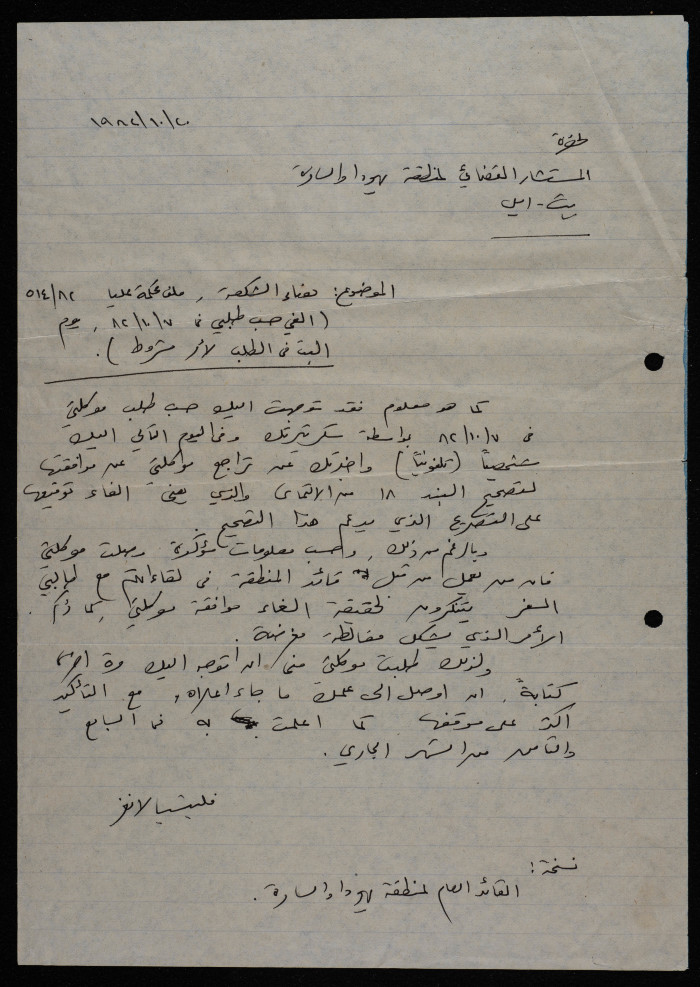 ١٩٨٢/١٠/٢٠
لحضرة
المستشار القضائي لمنطقة يهودا والسامرة
بيت - ايل
الموضوع: رفعة الشكعة، ملف محكمة عليا ٥١٤/٨٢
(الغي حسب طلبي في ٨٢/١٠/٧، يوم
البت في الطلب لأمر مشروط).
كما هو معلوم فقد توجهت اليك حسب طلب موكلتي
في ٨٢/١٠/٧ بواسطة سكرتيرتك وفي اليوم التالي اليك
شخصياً (تلفونياً) واخبرتك عن تراجع موكلتي عن موافقتها
لتصحيح البند ١٨ من الالتماس والذي يعني الغاء توقيعها
على التصريح الذي يدعم هذا التصحيح.
وبالرغم من ذلك، وحسب معلومات مؤكدة وصلت موكلتي
فان من يعمل من قبل قائد المنطقة في لقاءاتهم مع طالبي
السفر يتنكرون لحقيقة الغاء موافقة موكلتي
الأمر الذي يشكل مغالطة مغرضة.
ولذلك طلبت موكلتي مني ان اتوجه اليك مرة اخرى
كتابةً، ان اوصل الى علمك ما جاء اعلاه، مع التأكيد
على موقفها كما اعلمت به في السابع
والثامن من الشهر الجاري.
فليتسيا لانغر
نسخة:
القائد العام لمنطقة يهودا والسامرة.